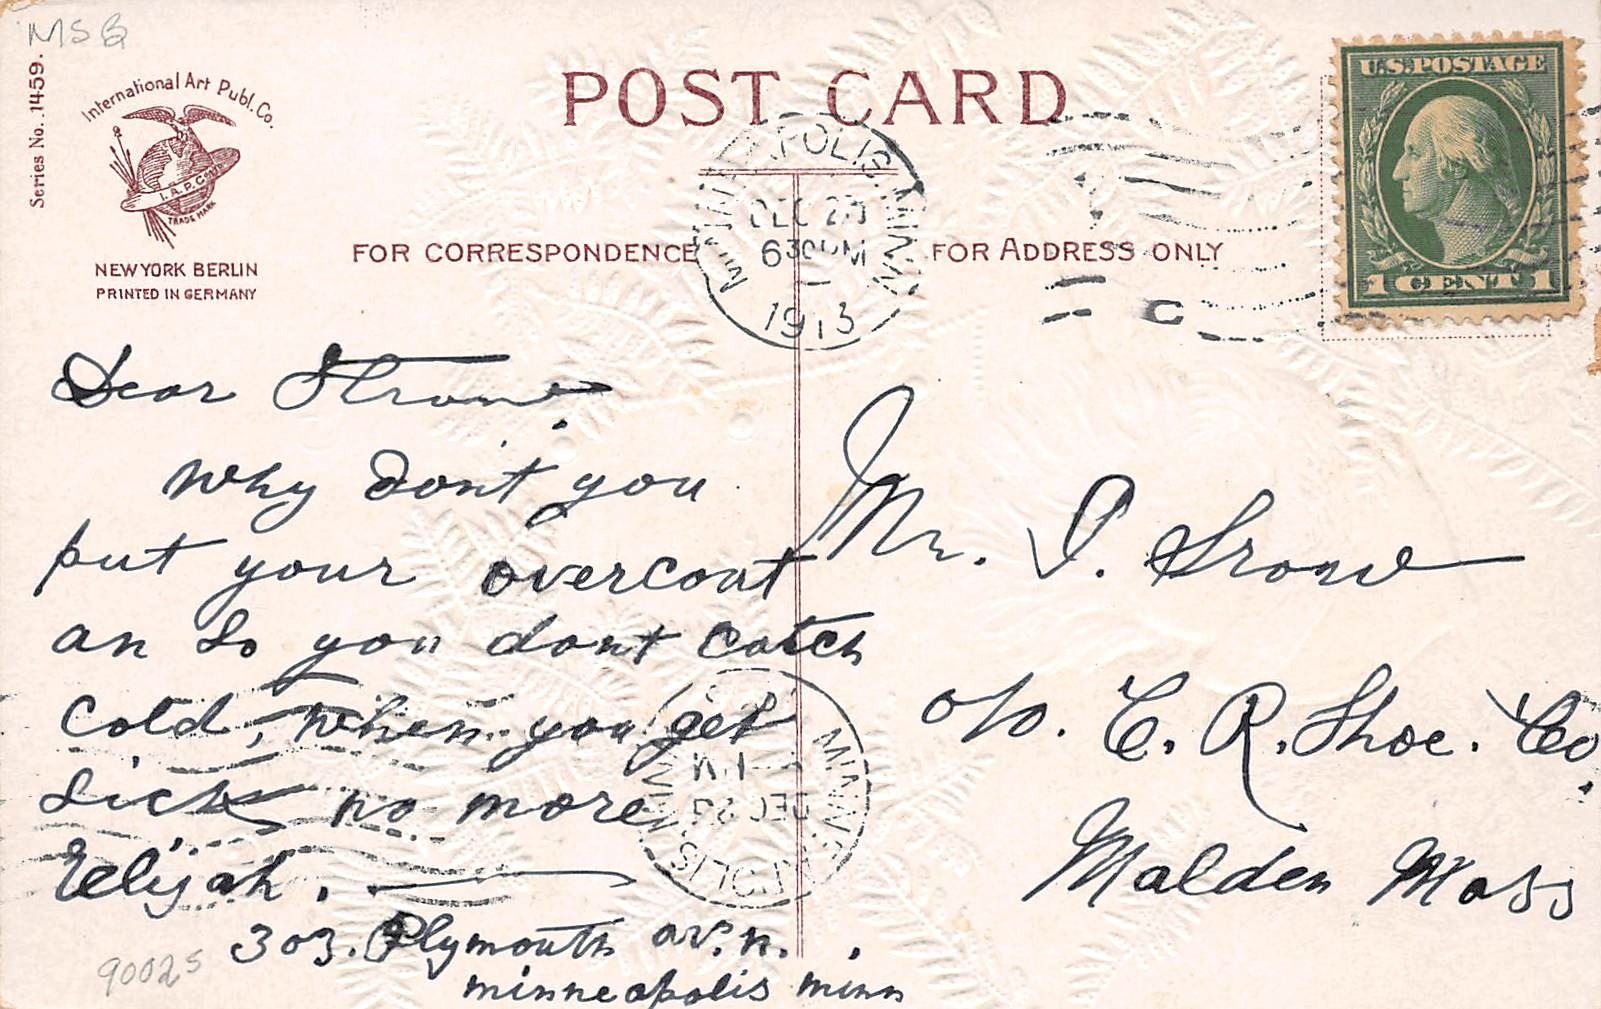 MSB
Series No. 1459.
International Art Publ. Co.
I. A. P. Co.
TRADE MARK
NEW YORK BERLIN
PRINTED IN GERMANY
POST CARD
FOR CORRESPONDENCE
FOR ADDRESS ONLY
MINNEAPOLIS, MINN.
DEC 2
630 PM
1913
U.S. POSTAGE
1 CENT 1
Dear
Why dont you
put your overcoat
an So you dont catch
cold, when you get
sick no more
Elijah.
303. Plymouth av. n.
minneapolis minn
90025
Mr.
c/o. E. R. Shoe. Co.
Malden Mass
MINNEAPOLIS MINN
DEC 23